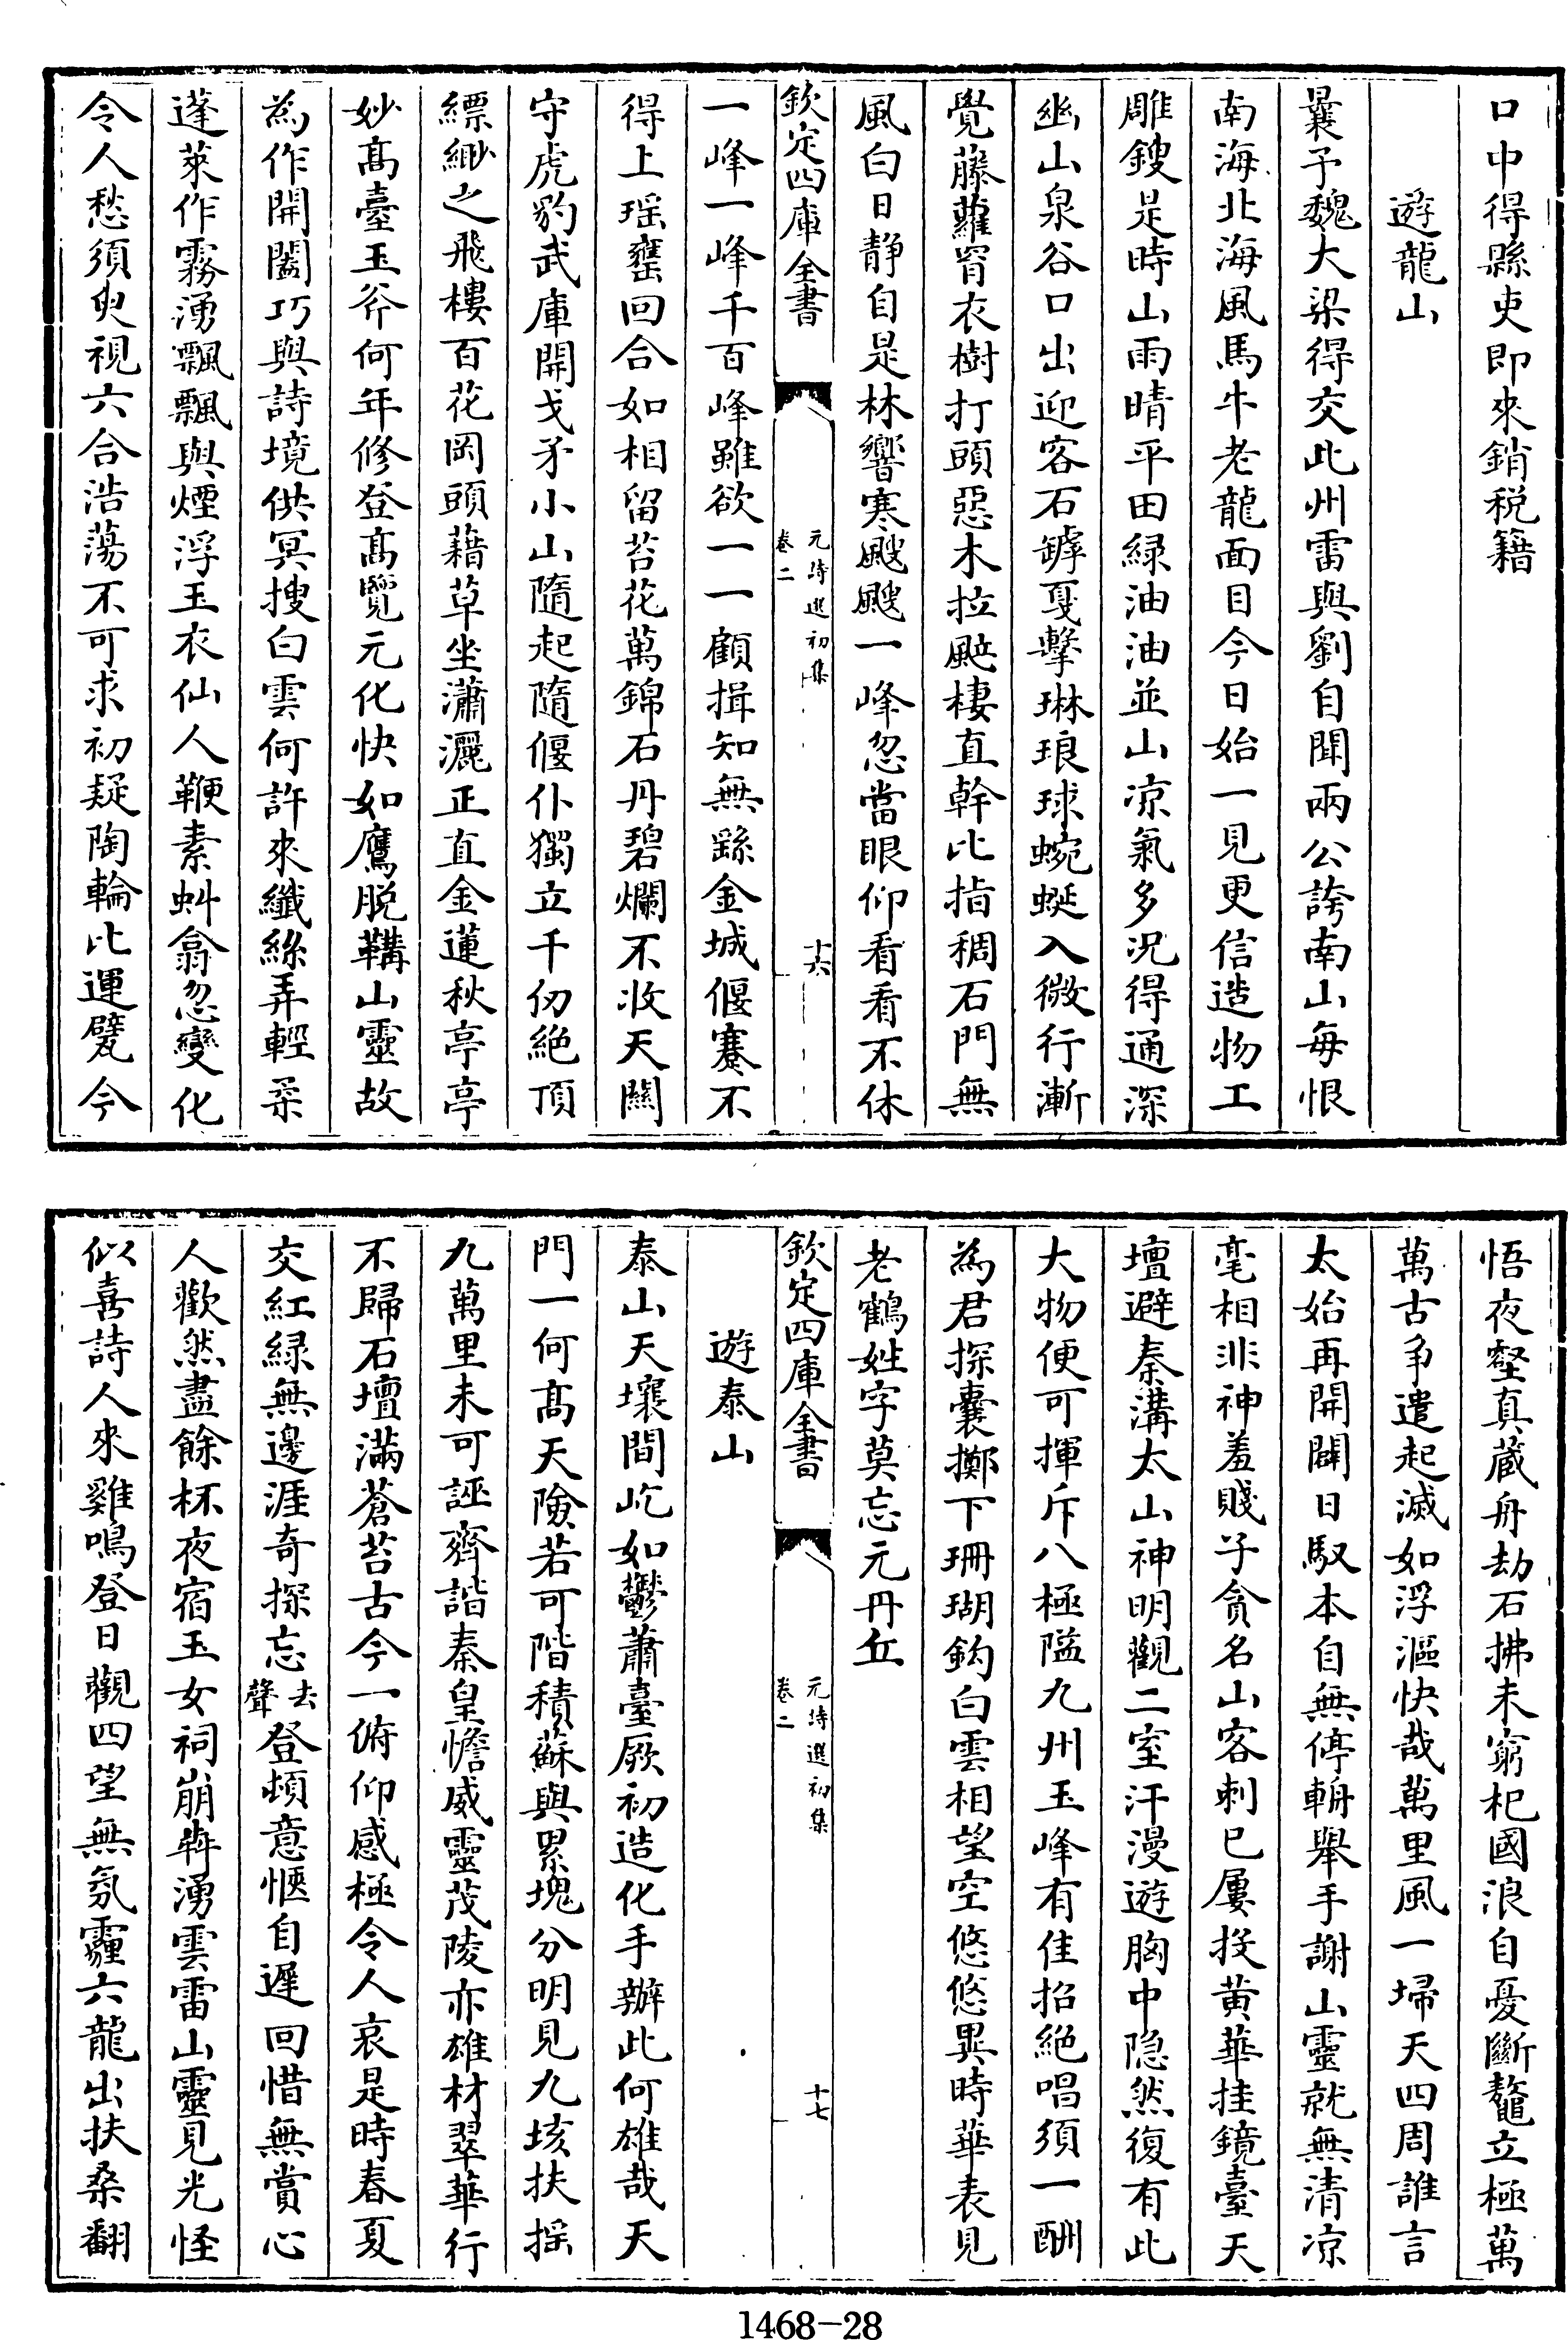 口中得縣吏即來銷税籍
遊龍山
曩予魏大梁得交此州雷與劉自聞兩公誇南山每恨
南海北海風馬牛老龍面目今日始一見更信造物工
雕鎪是時山雨晴平田緑油油並山凉氣多況得通深
幽山泉谷口出迎客石罅戛擊琳琅球蜿蜒入微行漸
覺藤蘿罥衣樹打頭惡木拉颭棲直幹比指稠石門無
風白日靜自是林響寒颼颼一峰忽當眼仰看看不休
欽定四庫全書
元詩選初集
卷二
十六
一峰一峰千百峰雖欲一一顧揖知無繇金城偃蹇不
得上瑶甕回合如相留苔花萬錦石丹碧爛不收天關
守虎豹武庫開戈矛小山隨起隨偃仆獨立千仞絶頂
縹緲之飛樓百花岡頭藉草坐瀟灑正直金蓮秋亭亭
妙髙臺玉斧何年修登髙覽元化快如鷹脱鞲山靈故
為作開闔巧與詩境供冥搜白雲何許來纖絲弄輕柔
蓬萊作霧湧飄飄與煙浮玉衣仙人鞭素虯翕忽變化
令人愁須臾視六合浩蕩不可求初疑陶輪比運甓今
悟夜壑真蔵舟劫石拂未窮杞國浪自憂斷鼇立極萬
萬古爭遣起滅如浮漚快哉萬里風一埽天四周誰言
太始再開闢日馭本自無停輈舉手謝山靈就無清凉
毫相非神羞賤子貪名山客刺已屢投黄華挂鏡臺天
壇避秦溝太山神明觀二室汗漫遊胸中隐然復有此
大物便可揮斥八極隘九州玉峰有佳招絶唱須一酬
為君探囊擲下珊瑚鈎白雲相望空悠悠異時華表見
老鶴姓字莫忘元丹丘
欽定四庫全書
元詩選初集
卷二
十七
遊泰山
泰山天壤間屹如鬱蕭臺厥初造化手辦此何雄哉天
門一何髙天險若可階積蘇與累塊分明見九垓扶摇
九萬里未可誣齊諧秦皇憺威靈茂陵亦雄材翠華行
不歸石壇滿蒼苔古今一俯仰感極令人哀是時春夏
交紅緑無邊涯奇探忘去聲登頓意愜自遲回惜無賞心
人歡然盡餘杯夜宿玉女祠崩奔湧雲雷山靈見光怪
似喜詩人來雞鳴登日觀四望無氛霾六龍出扶桑翻
1468-28